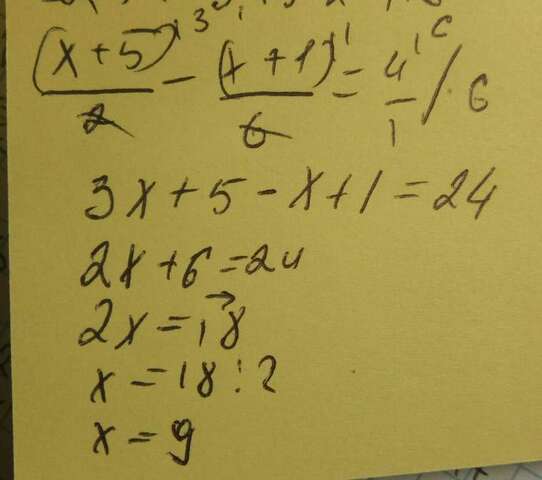 (x+5)'³/2 - (x+1)'¹/6 = 4'⁶/1 /·6
3x+5-x+1=24
2x+6=24
2x=18
x=18:2
x=9